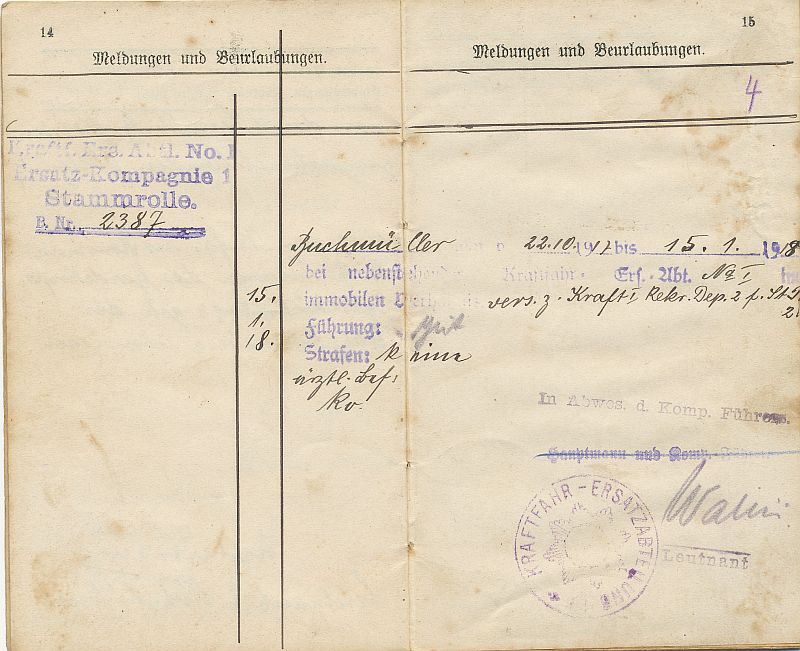 14
Meldungen und Beurlaubungen.
Kraftf. Ers. Abtl. No. 1
Ersatz-Kompagnie 1
Stammrolle.
B. Nr. 2387
15
Meldungen und Beurlaubungen.
4
Buchmüller 22.10.1917 bis 15. 1. 1918
bei nebenstehender Kraftfahr- Ers.-Abt. No I im
15. immobilen vers. z. Kraftf. Rekr. Dep. 2 f.
1. Führung: gut
18. Strafen: keine
ärztl. Bef:
kv.
In Abwes. d. Komp. Führers.
Hauptmann und Komp.-Führer
Leutnant
KRAFTFAHR-ERSATZABTEILUNG